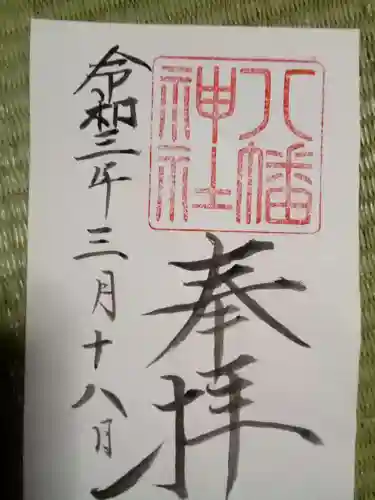 八幡
神社
奉拝
令和三年三月十八月